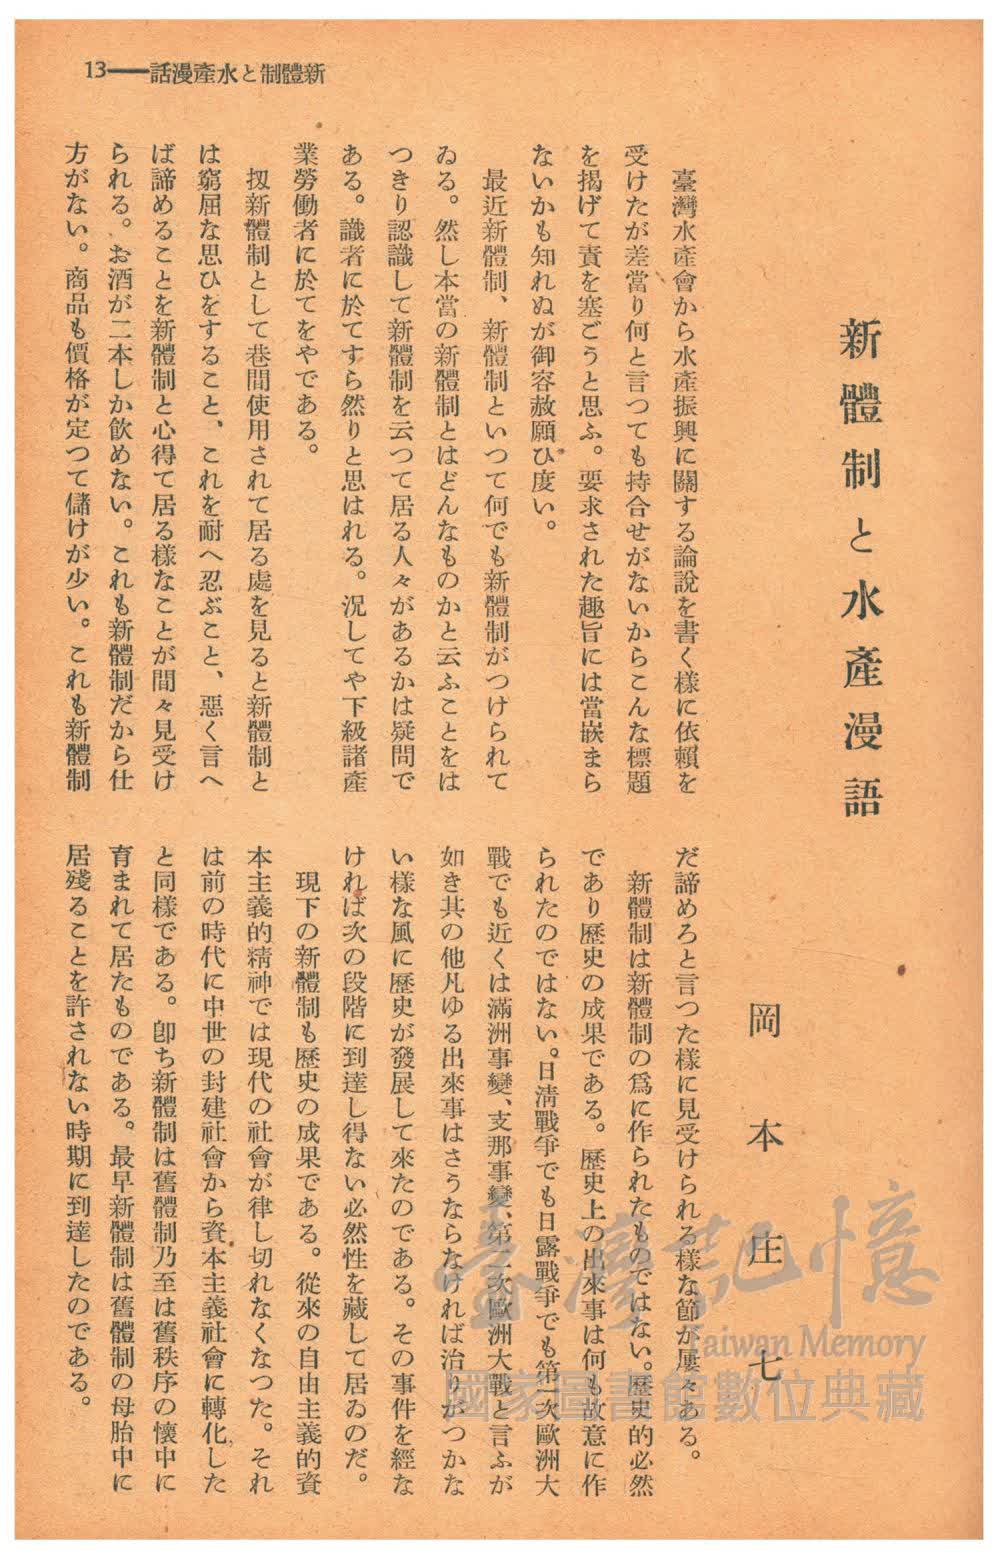 13━━話漫產水と制體新
新體制と水產漫語
岡本庄七
臺灣水產會から水產振興に關する論說を書く樣に依賴を
受けたが差當り何と言つても持合せがないからこんな標題
を揭げて責を塞ごうと思ふ。要求された趣旨には當嵌まら
ないかも知れぬが御容赦願ひ度い。
最近新體制、新體制といつて何でも新體制がつけられて
ゐる。然し本當の新體制とはどんなものかと云ふことをは
つきり認識して新體制を云つて居る人々があるかは疑問で
ある。識者に於てすら然りと思はれる。況してや下級諸產
業勞働者に於てをやである。
扨新體制として巷間使用されて居る處を見ると新體制と
は窮屈な思ひをすること、これを耐へ忍ぶこと、惡く言へ
ば諦めることを新體制と心得て居る樣なことが間々見受け
られる。お酒が二本しか飮めない。これも新體制だから仕
方がない。商品も價格が定つて儲けが少い。これも新體制
だ諦めろと言つた樣に見受けられる樣な節が屢々ある。
新體制は新體制の爲に作られたものではない。歷史的必然
であり歷史の成果である。歷史上の出來事は何も故意に作
られたのではない。日淸戰爭でも日露戰爭でも第一次歐洲大
戰でも近くは滿洲事變、支那事變、第二次歐洲大戰と言ふが
如き其の他凡ゆる出來事はさうならなければ治りがつかな
い樣な風に歷史が發展して來たのである。その事件を經な
ければ次の段階に到達し得ない必然性を藏して居ゐのだ。
現下の新體制も歷史の成果である。從來の自由主義的資
本主義的精神では現代の社會が律し切れなくなつた。それ
は前の時代に中世の封建社會から資本主義社會に轉化した
と同樣である。卽ち新體制は舊體制乃至は舊秩序の懷中に
育まれて居たものである。最早新體制は舊體制の母胎中に
居殘ることを許されない時期に到達したのである。
臺灣記憶
Taiwan Memory
國家圖書館數位典藏